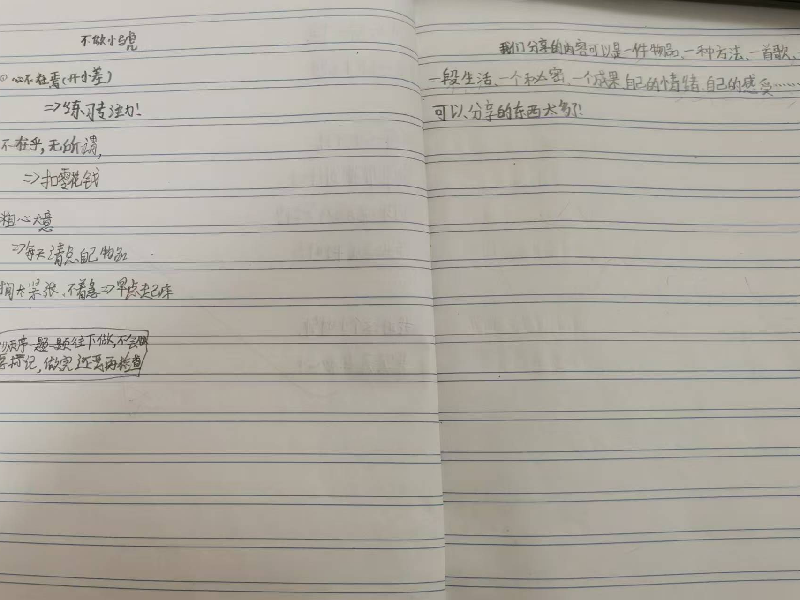 不做小马虎
①心不在焉(开小差)
⇒练习专注力!
不在乎,无所谓,
⇒扣零花钱
粗心大意
⇒每天清点自己物品
时间太紧张,不着急⇒早点起床
顺序一题一题往下做,不会做
要标记,做完还要再检查
我们分享的内容可以是一件物品、一种方法、一首歌、
一段生活、一个秘密、一个成果、自己的情绪、自己的感受……
可以分享的东西太多了!